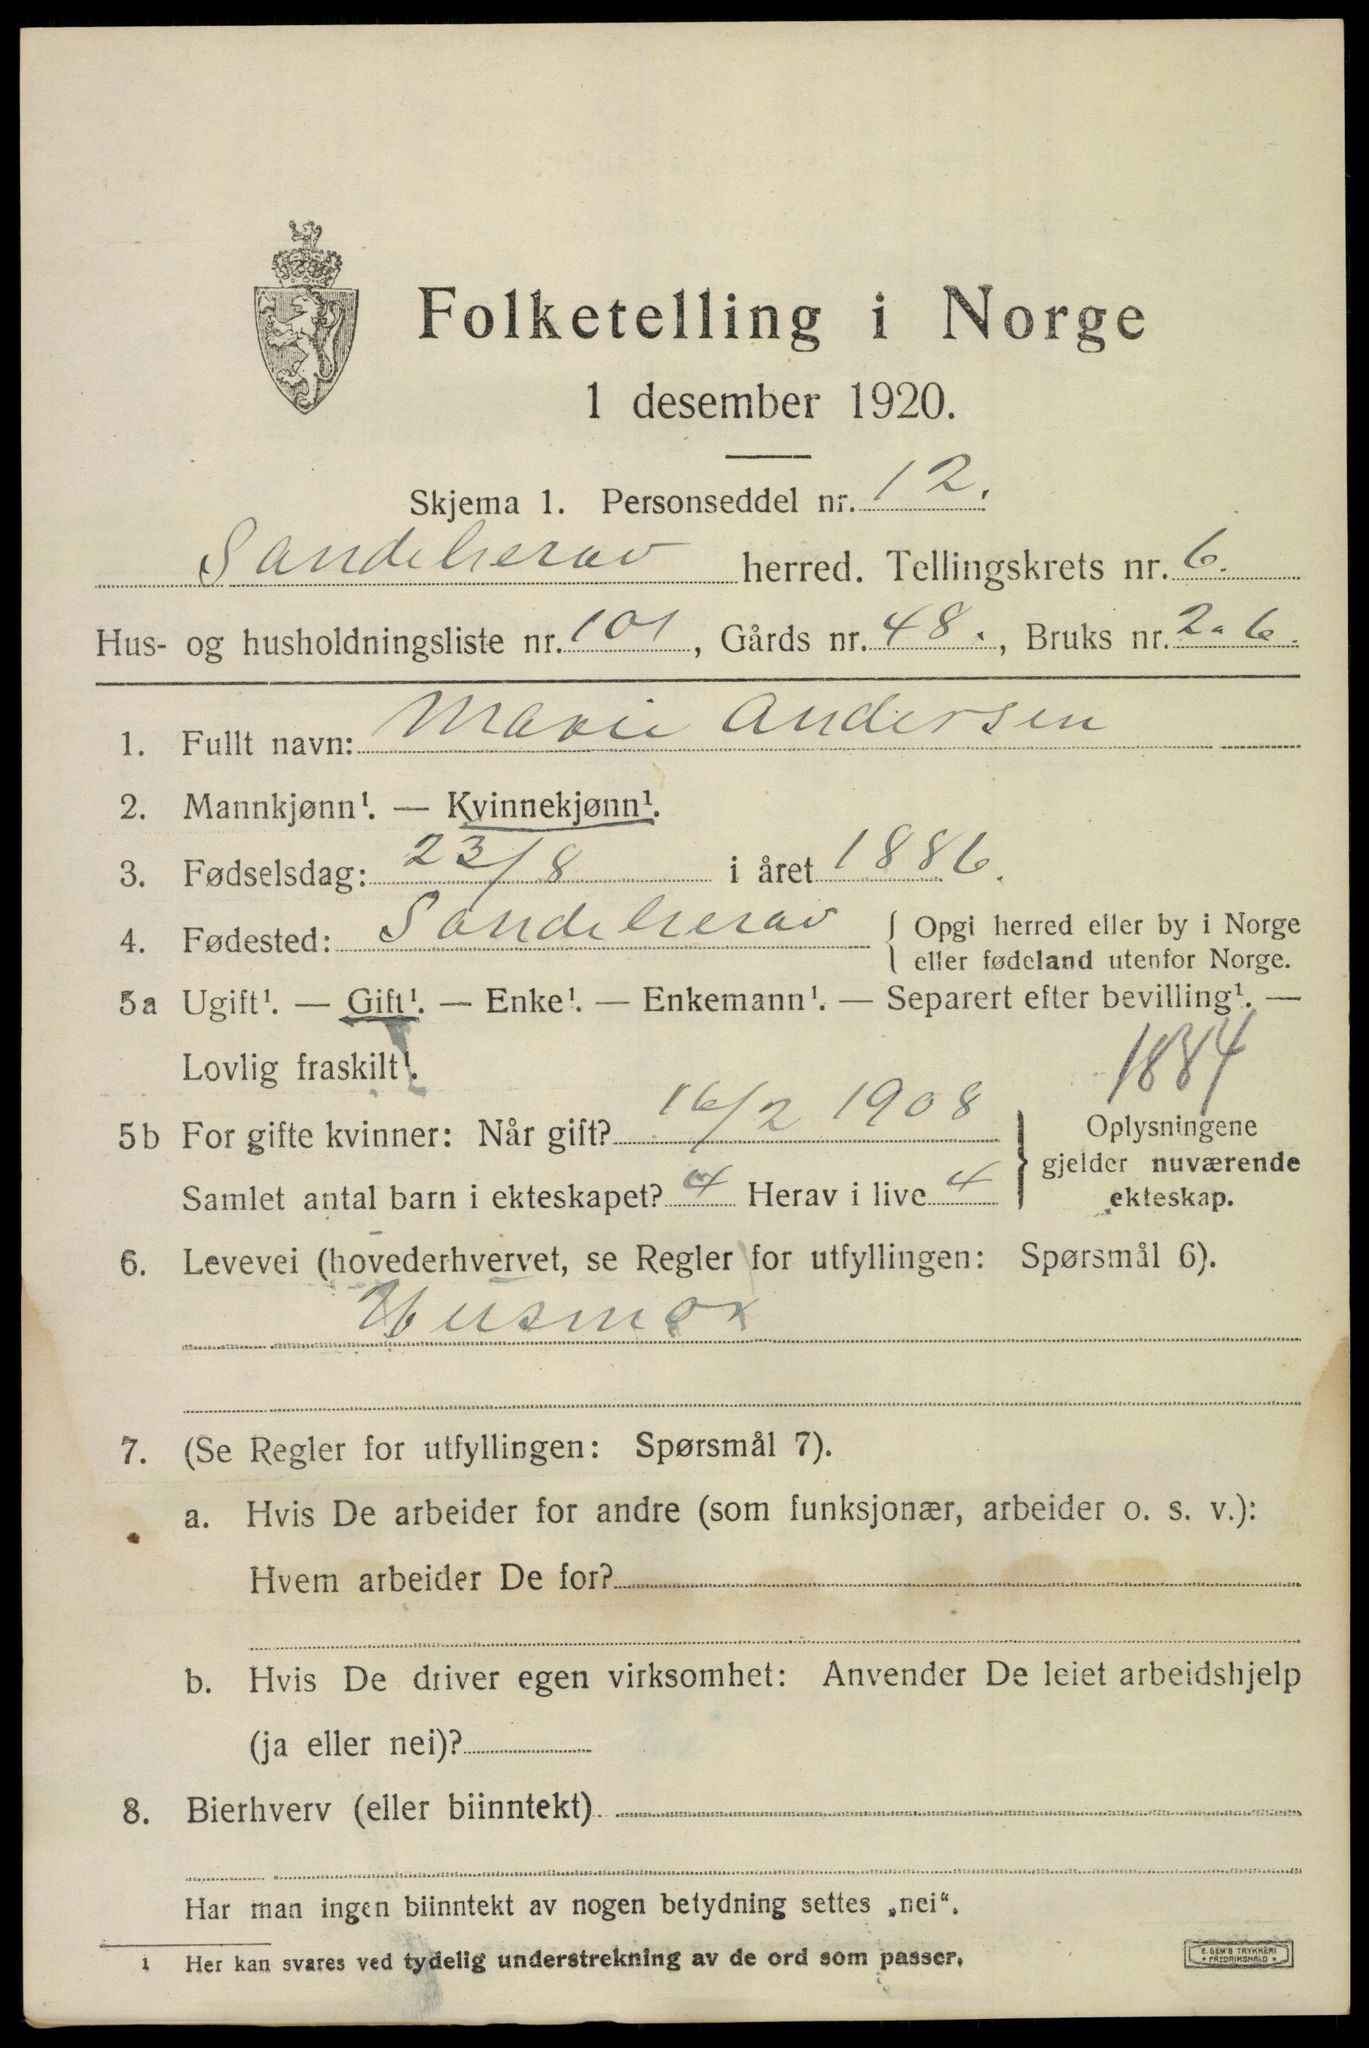 Folketelling i Norge
1 desember 1920.
Skjema 1. Personseddel nr. 12.
Sandeherav herred. Tellingskrets nr. 6.
Hus- og husholdningsliste nr. 101, Gårds nr. 48., Bruks nr. 2-6.
1. Fullt navn: Marie Andersen
2. Mannkjønn¹. — Kvinnekjønn¹.
3. Fødselsdag: 23/8 i året 1886.
4. Fødested: Sandeherav { Opgi herred eller by i Norge
eller fødeland utenfor Norge.
5a Ugift¹. — Gift¹. — Enke¹. — Enkemann¹. — Separert efter bevilling¹. —
Lovlig fraskilt¹.
1884
5b For gifte kvinner: Når gift? 16/2 1908
Samlet antal barn i ekteskapet? 4 Herav i live 4
} Oplysningene
gjelder nuværende
ekteskap.
6. Levevei (hovederhvervet, se Regler for utfyllingen: Spørsmål 6).
Husmor
7. (Se Regler for utfyllingen: Spørsmål 7).
a. Hvis De arbeider for andre (som funksjonær, arbeider o. s. v.):
Hvem arbeider De for?
b. Hvis De driver egen virksomhet: Anvender De leiet arbeidshjelp
(ja eller nei)?
8. Bierhverv (eller biinntekt)
Har man ingen biinntekt av nogen betydning settes „nei“.
1 Her kan svares ved tydelig understrekning av de ord som passer.
E. SEM'S TRYKKERI
FREDRIKSHALD